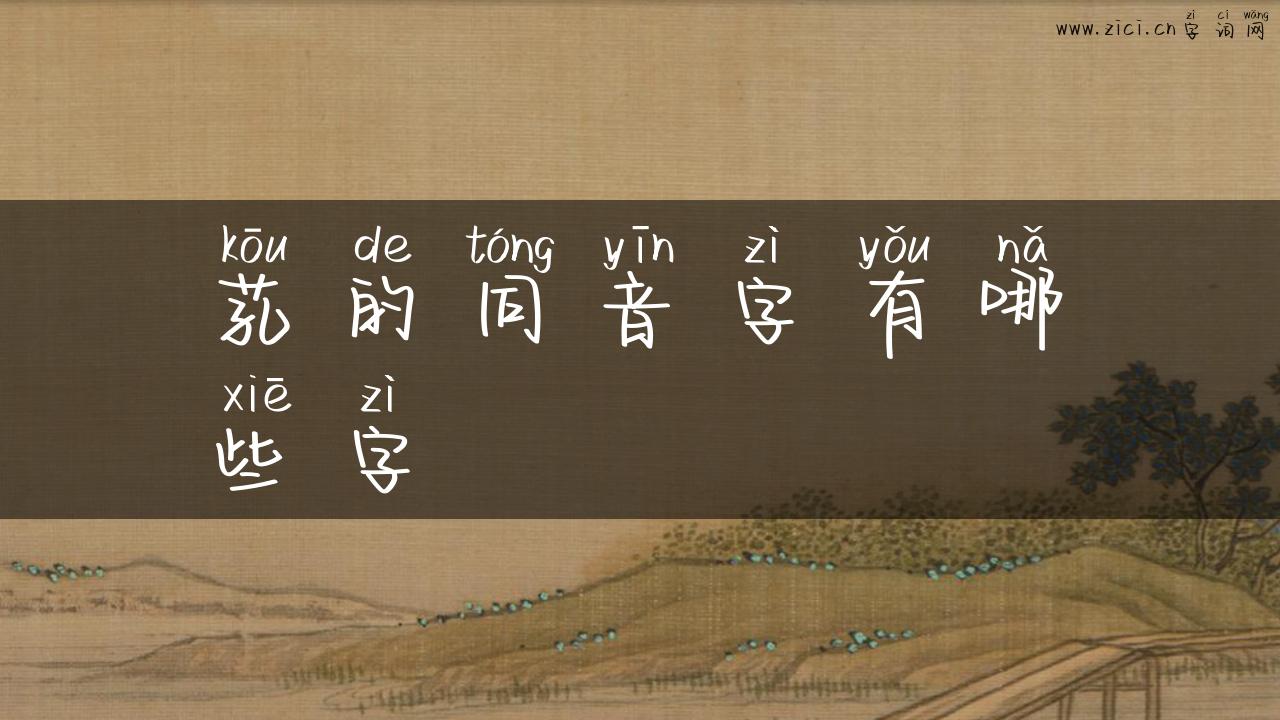 zì cí wǎng
www.zici.cn 字词网
kōu de tóng yīn zì yǒu nǎ
芤的同音字有哪
xiē zì
些字